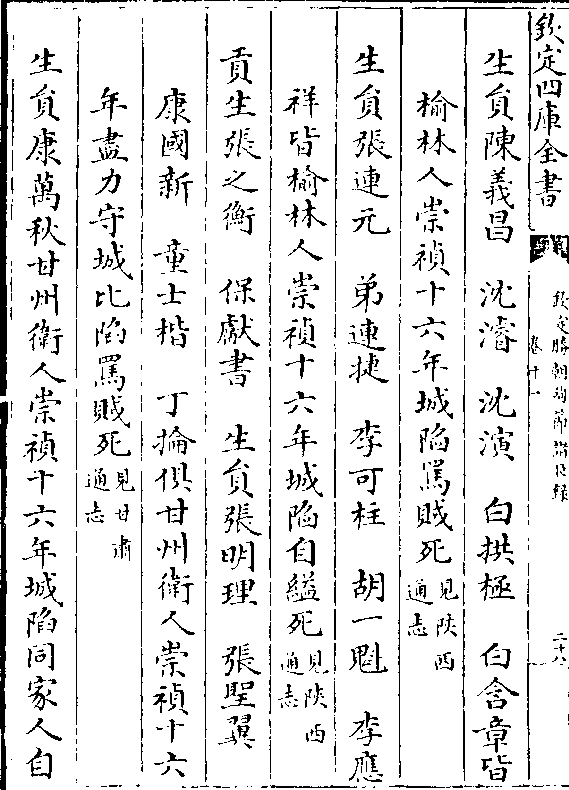 欽定四庫全書
欽定勝朝殉節諸臣録
卷十一
二十八
生員陳義昌 沈濬 沈演 白拱極 白含章皆
榆林人崇禎十六年城陷罵賊死見陜西通志
生員張連元 弟連捷 李可柱 胡一魁 李應
祥皆榆林人崇禎十六年城陷自縊死見陜西通志
貢生張之衡 保獻書 生員張明理 張聖翼
康國新 童士楷 丁掄俱甘州衛人崇禎十六
年盡力守城比陷罵賊死見甘肅通志
生員康萬秋甘州衛人崇禎十六年城陷同家人自